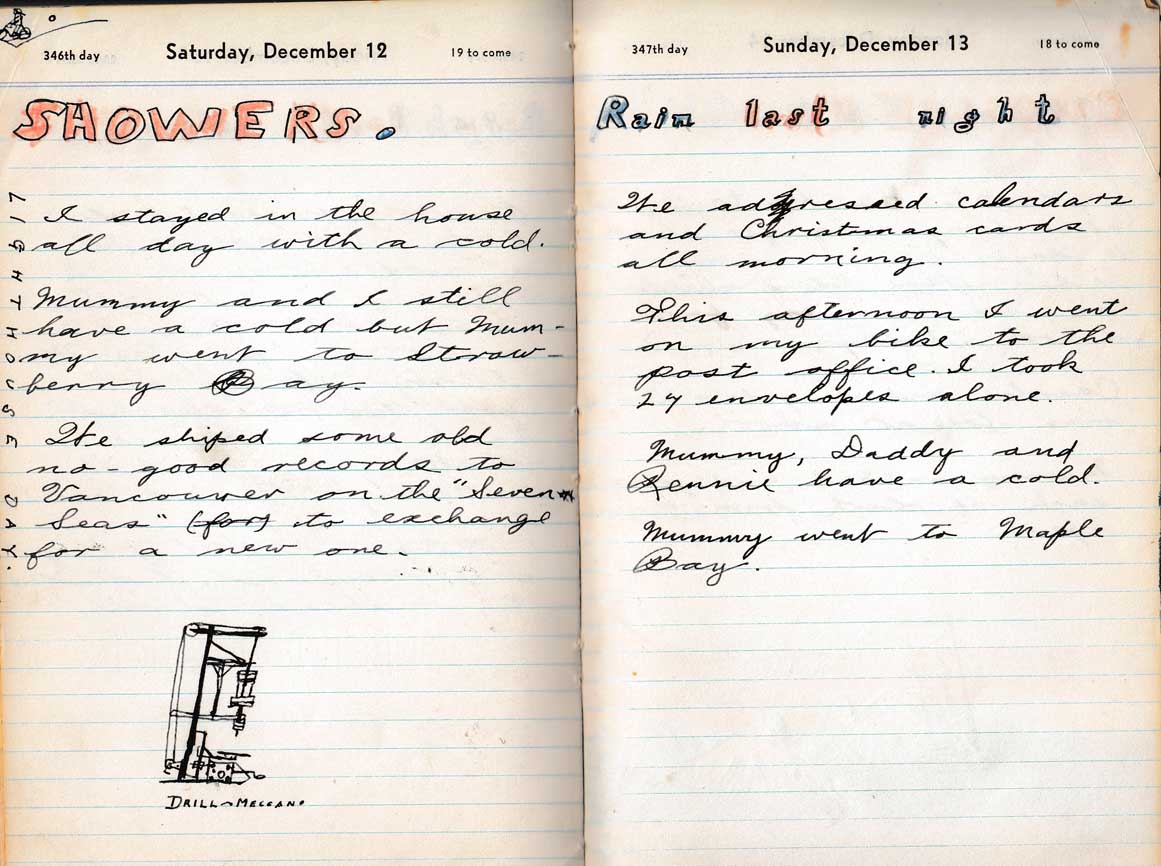 346th day Saturday, December 12 19 to come
SHOWERS.
LIGHTHOUSE DAY.
I stayed in the house
all day with a cold.
Mummy and I still
have a cold but Mum-
my went to Straw-
berry Bay.
We shiped some old
no-good records to
Vancouver on the "Seven
Seas" (for) to exchange
for a new one.
DRILL~MECCANO
347th day Sunday, December 13 18 to come
Rain last night
We addressed calendars
and Christmas cards
all morning.
This afternoon I went
on my bike to the
post office. I took
24 envelopes alone.
Mummy, Daddy and
Rennie have a cold.
Mummy went to Maple
Bay.